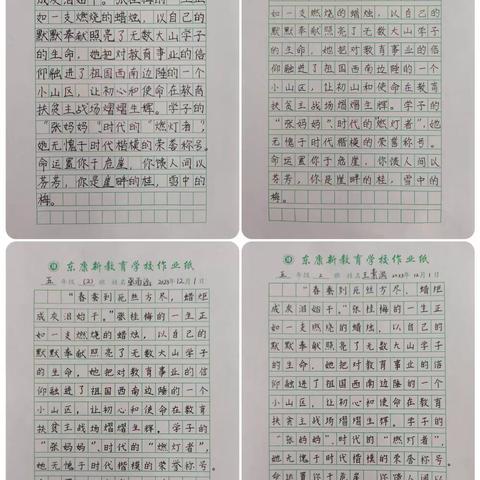 成灰泪始干。”张桂梅的一生正
如一支燃烧的蜡烛，以自己的
默默奉献照亮了无数大山学子
的生命，她把对教育事业的信
仰融进了祖国西南边陲的一个
小山区，让初心和使命在教育
扶贫主战场熠熠生辉。学子的
“张妈妈”、时代的“燃灯者”，
她无愧于时代楷模的荣誉称号。
命运置你于危崖，你馈人间以
芬芳，你是崖畔的桂，雪中的
梅。
如一支燃烧的蜡烛，以自己的
默默奉献照亮了无数大山学子
的生命，她把对教育事业的信
仰融进了祖国西南边陲的一个
小山区，让初心和使命在教育
扶贫主战场熠熠生辉。学子的
“张妈妈”、时代的“燃灯者”，她
无愧于时代楷模的荣誉称号。
命运置你于危崖，你馈人间以
芬芳，你是崖畔的桂，雪中的
梅。
东康新教育学校作业纸
五 年级 (2) 班 姓名 2023年12月1日
“春蚕到死丝方尽，蜡炬
成灰泪始干。”张桂梅的一生正
如一支燃烧的蜡烛，以自己的
默默奉献照亮了无数大山学子
的生命，她把对教育事业的信
仰融进了祖国西南边陲的一个
小山区，让初心和使命在教育
扶贫主战场熠熠生辉。学子的
“张妈妈”、时代的“燃灯者”，
她无愧于时代楷模的荣誉称号。
东康新教育学校作业纸
五 年级 2 班 姓名 2023年12月1日
“春蚕到死丝方尽，蜡炬
成灰泪始干。”张桂梅的一生正
如一支燃烧的蜡烛，以自己的
默默奉献照亮了无数大山学子
的生命，她把对教育事业的信
仰融进了祖国西南边陲的一个
小山区，让初心和使命在教育
扶贫主战场熠熠生辉。学子的
“张妈妈”、时代的“燃灯者”，
她无愧于时代楷模的荣誉称号。
命运置你于危崖，你馈人间以